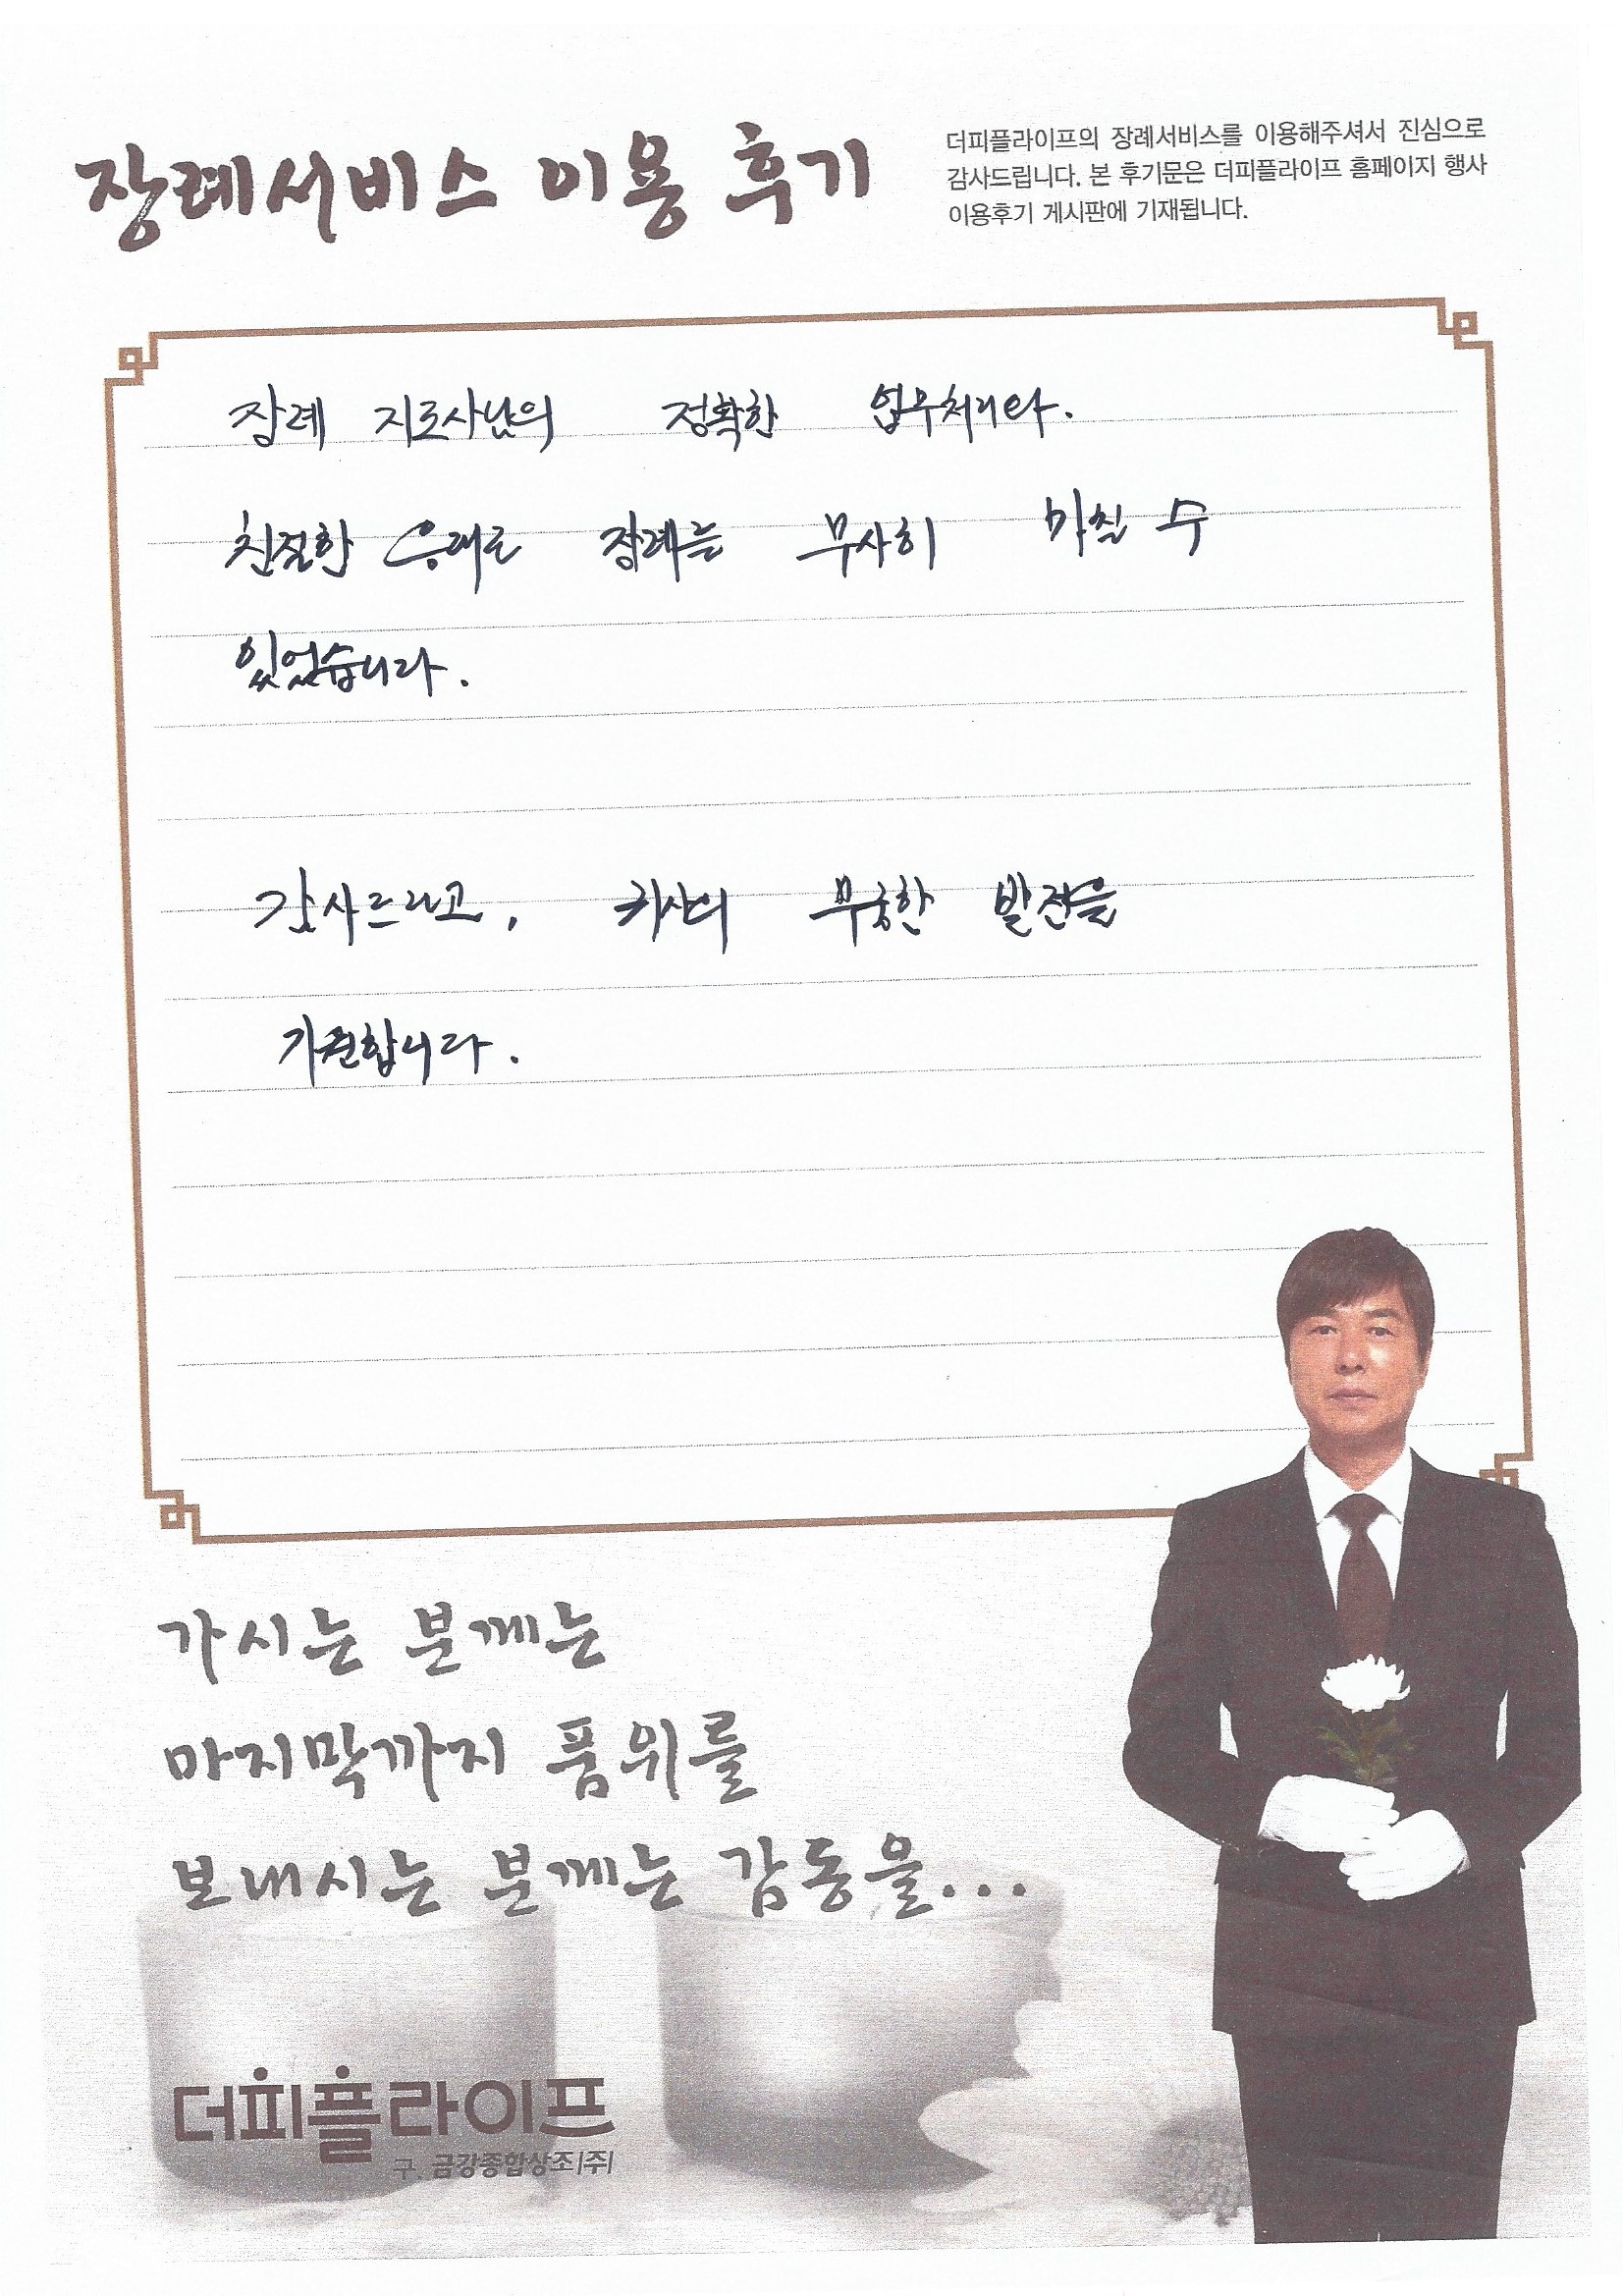 장례서비스 이용 후기
더피플라이프의 장례서비스를 이용해주셔서 진심으로
감사드립니다. 본 후기문은 더피플라이프 홈페이지 행사
이용후기 게시판에 기재됩니다.
장례 지도사님의 정확한 업무처리와.
친절한 응대로 장례는 무사히 마칠 수
있었습니다.
감사드리고, 귀사의 무궁한 발전을
기원합니다.
가시는 분께는
마지막까지 품위를
보내시는 분께는 감동을...
더피플라이프
구. 금강종합상조|주|